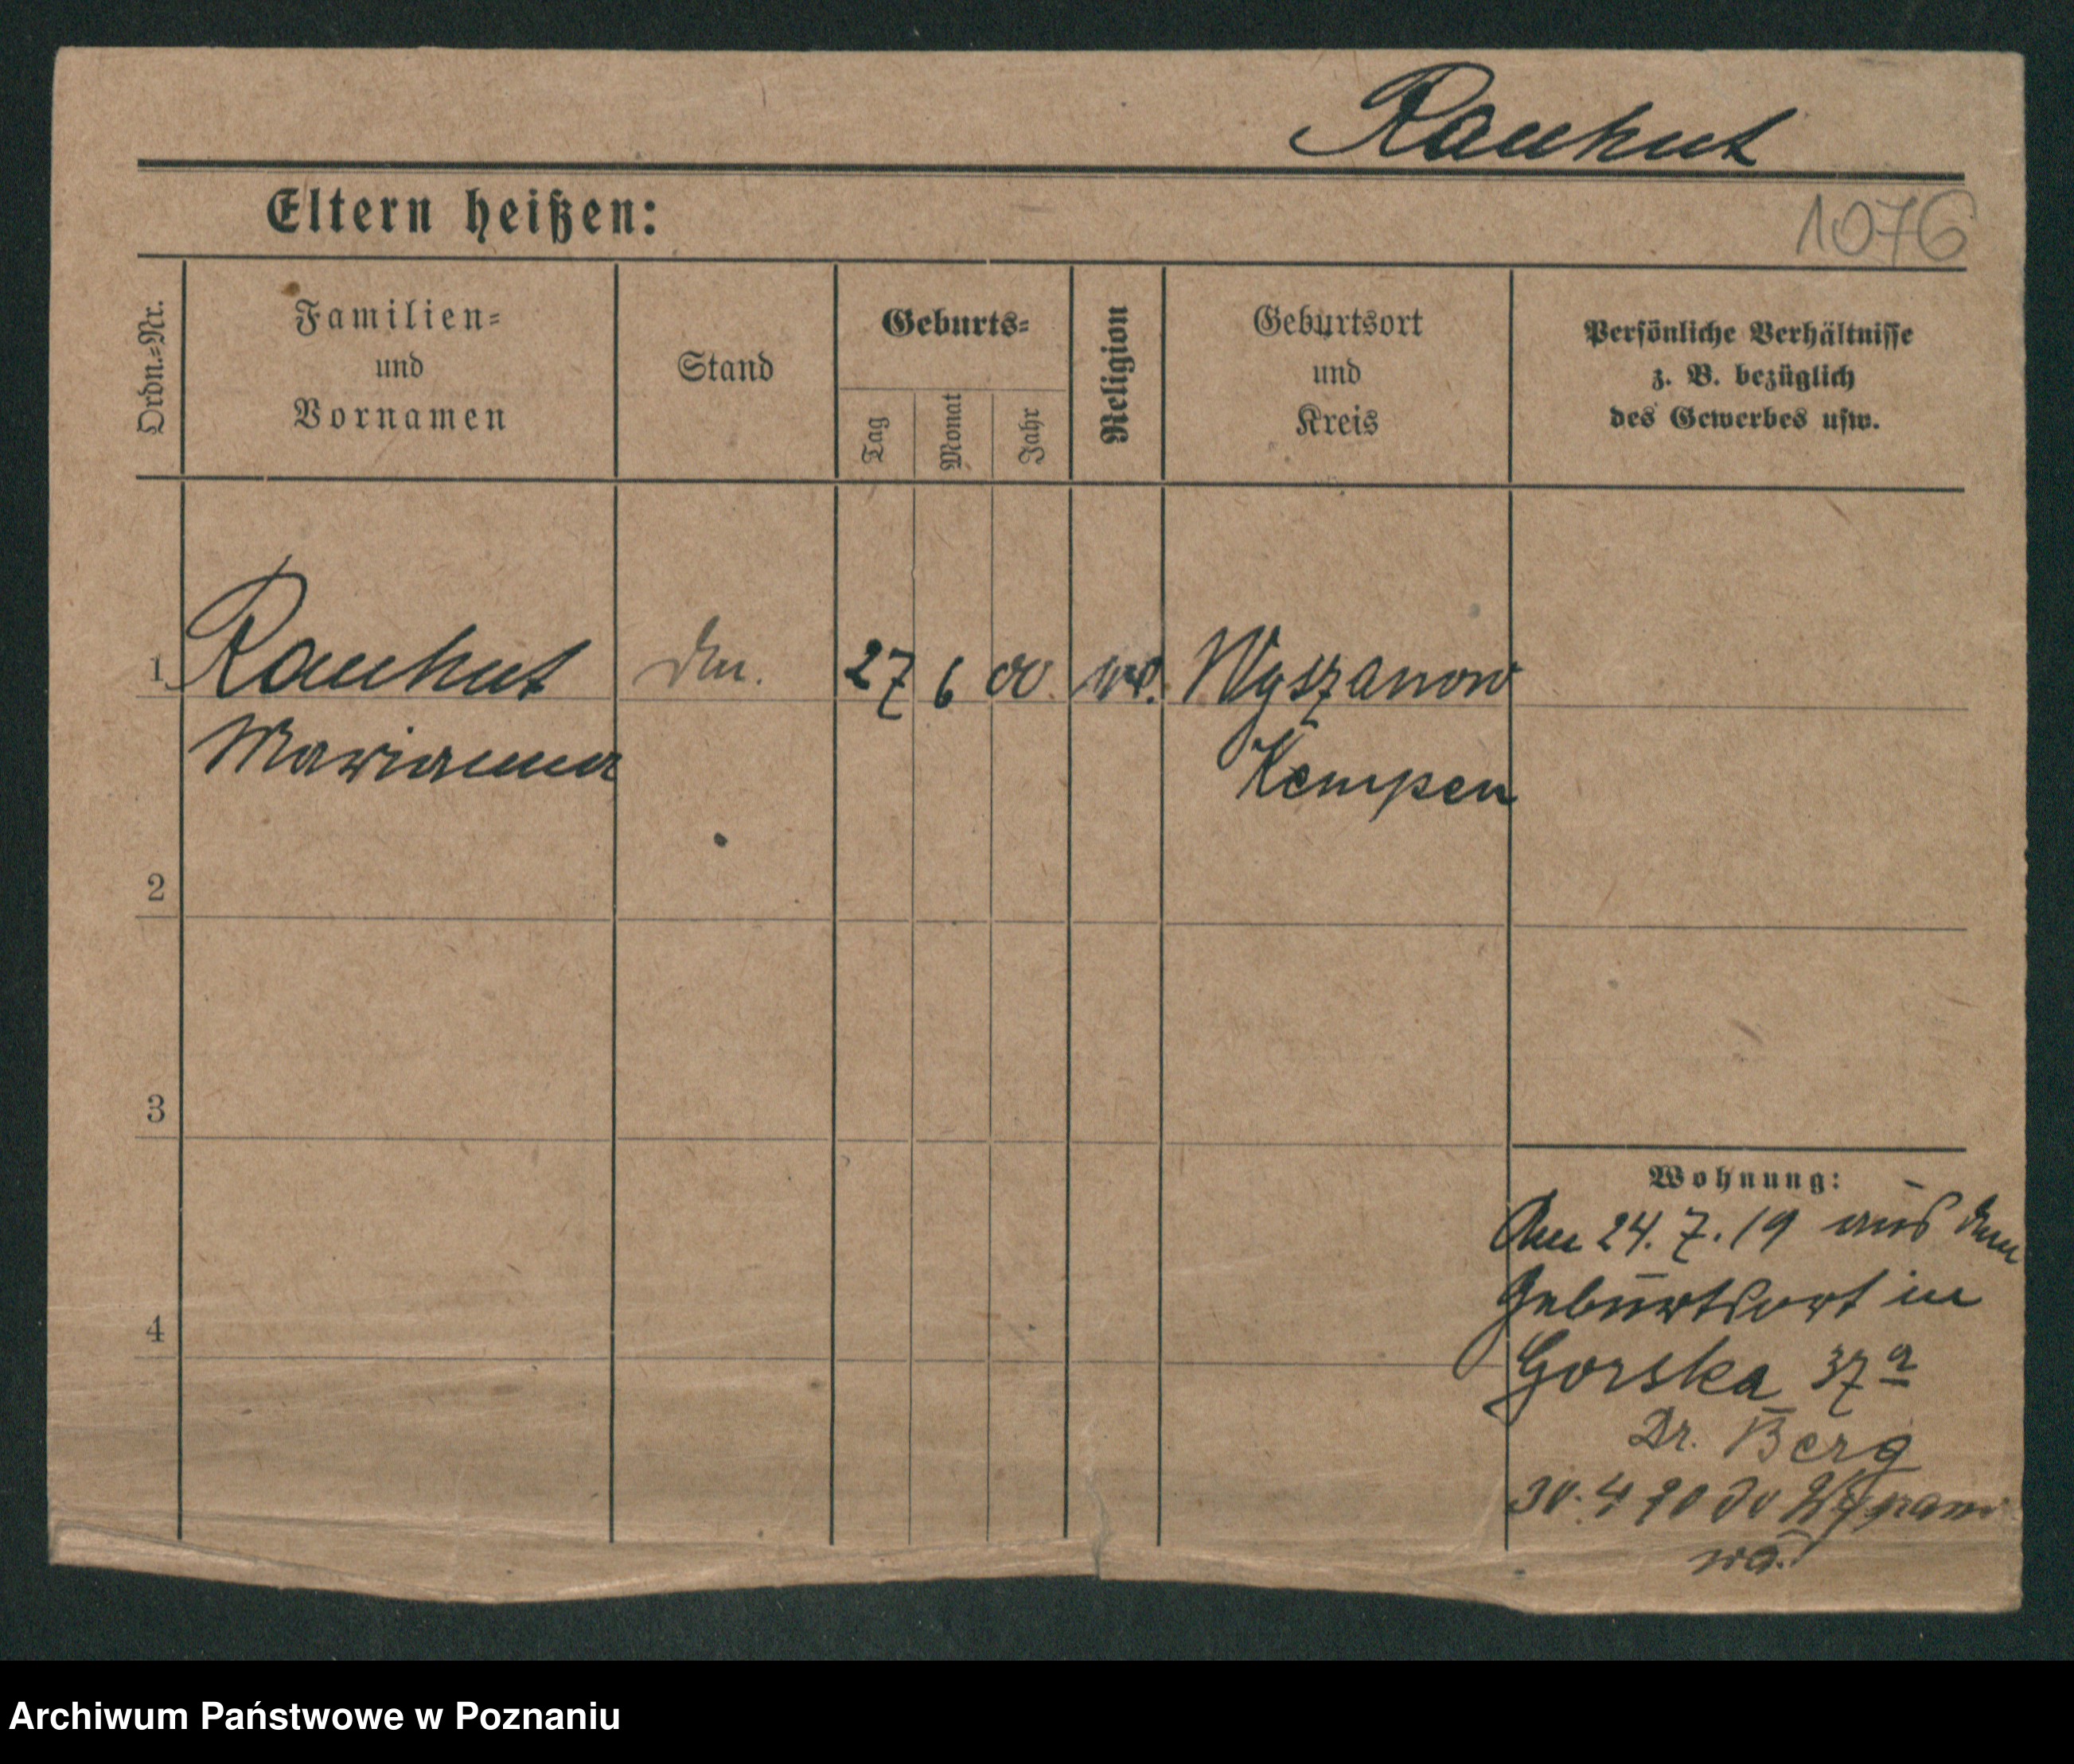 Rauhut
Eltern heißen:
1076
Ordn.=Nr.
Familien=
und
Vornamen
Stand
Geburts=
Tag
Monat
Jahr
Religion
Geburtsort
und
Kreis
Persönliche Verhältnisse
z. B. bezüglich
des Gewerbes usw.
1 Rauhut 27 6 00 Wyszanow
Marianna
Kempen
2
3
4
Wohnung:
24. 7. 19 aus dem
Geburtsort in
Gorska 37a
Dr. Berg
30. 4 20 do
Archiwum Państwowe w Poznaniu